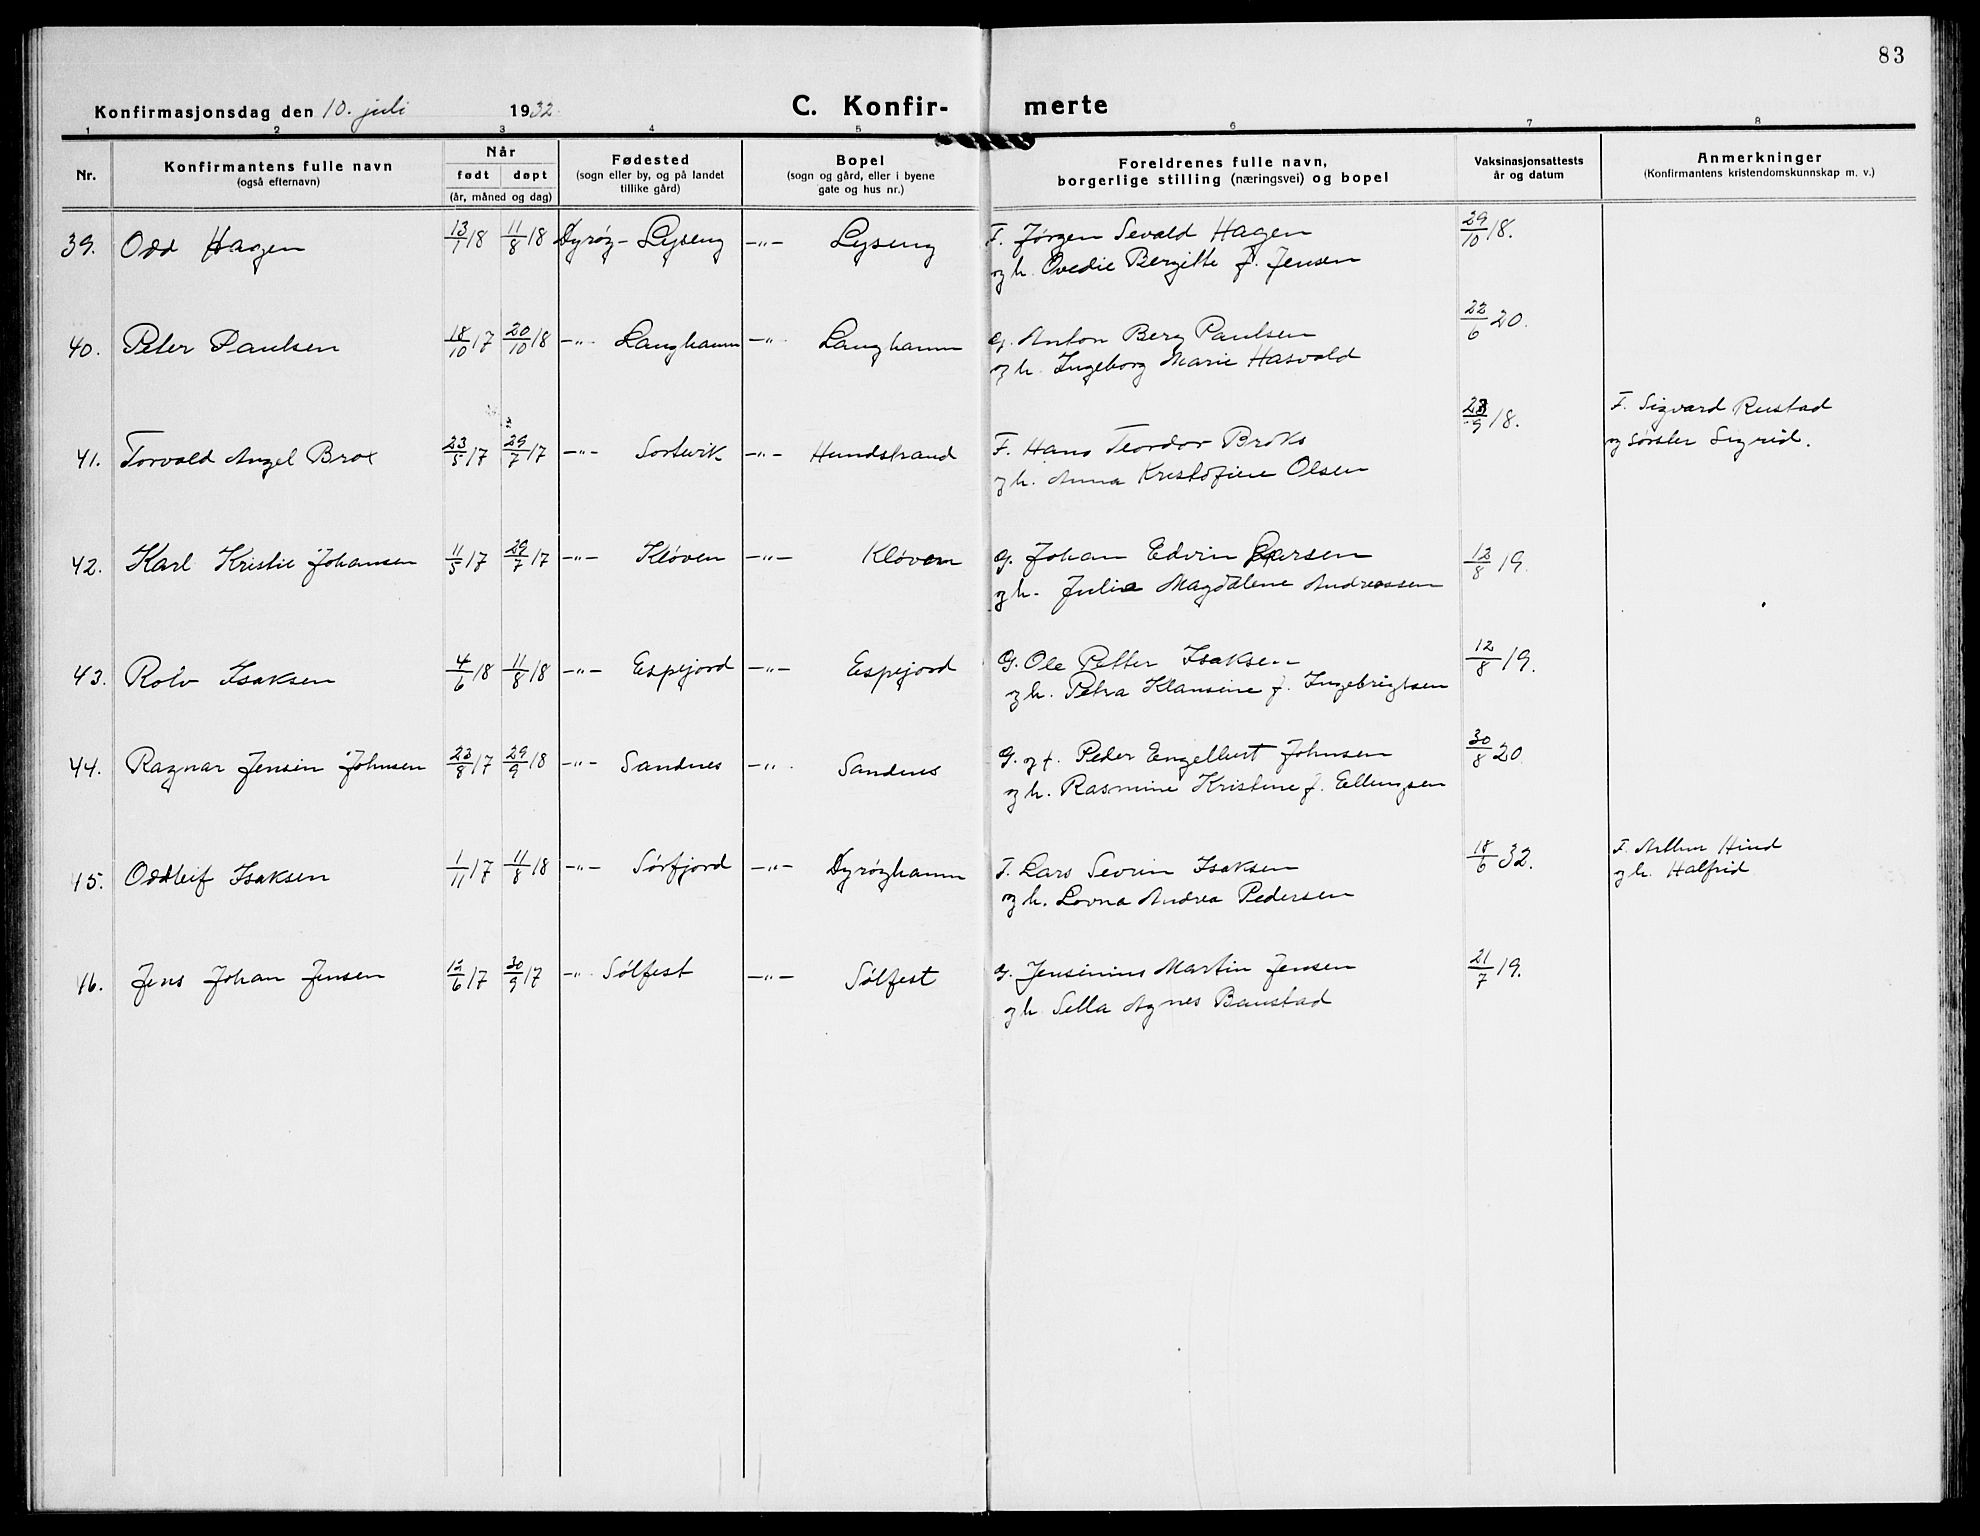 83
Konfirmasjonsdag den 10. juli 1932
C. Konfir- merte
1 2 3 4 5 6 7 8
Nr.
Konfirmantens fulle navn
(også efternavn)
Når
født døpt
(år, måned og dag)
Fødested
(sogn eller by, og på landet
tillike gård)
Bopel
(sogn og gård, eller i byene
gate og hus nr.)
Foreldrenes fulle navn,
borgerlige stilling (næringsvei) og bopel
Vaksinasjonsattests
år og datum
Anmerkninger
(Konfirmantens kristendomskunnskap m. v.)
39. Odd Hagen 13/1 18 11/8 18 Dyrøy - Lyseng -"- Lyseng F. Jørgen Sevald Hagen 29/10 18.
og h. Ovedie Bergitte f. Jensen
40. Peter Paulsen 18/10 17 20/10 18 -"- Langhamn -"- Langhamn G. Anton Berg Paulsen 22/6 20.
og h. Ingeborg Marie Hasvold
41. Torvald Angel Brox 23/5 17 29/7 17 -"- Sortvik -"- Hundstrand F. Hans Teordor Broks /9 18. F. Sigvard Rustad
og h. Anna Kristofine Olsen og sørster Sigrid.
42. Karl Kristie Johansen 11/5 17 29/7 17 -"- Kløven -"- Kløven G. Johan Edvin Larsen 12/8 19.
og h. Julie Magdalene Andreassen
43. Rolv Isaksen 4/6 18 11/8 18 -"- Espejord -"- Espejord G. Ole Petter Isaksen 12/8 19.
og h. Petra Klausine f. Ingebrigtsen
44. Ragnar Jensin Johnsen 23/8 17 29/9 18 -"- Sandnes -"- Sandnes G. og f. Peder Engelbert Johnsen 30/8 20
og h. Rasmine Kristine f. Ellingsen
45. Oddleif Isaksen 1/11 17 11/8 18 -"- Sørfjord -"- Dyrøyhamn F. Lars Sevrin Isaksen 18/6 32. F. Arthur Hind
og h. Lovna Andrea Pedersen og h. Halfrid
46. Jens Johan Jensen 12/6 17 30/9 17 -"- Sølfest -"- Sølfest G. Jensinius Martin Jensen 21/7 19.
og h. Sella Agnes Baustad